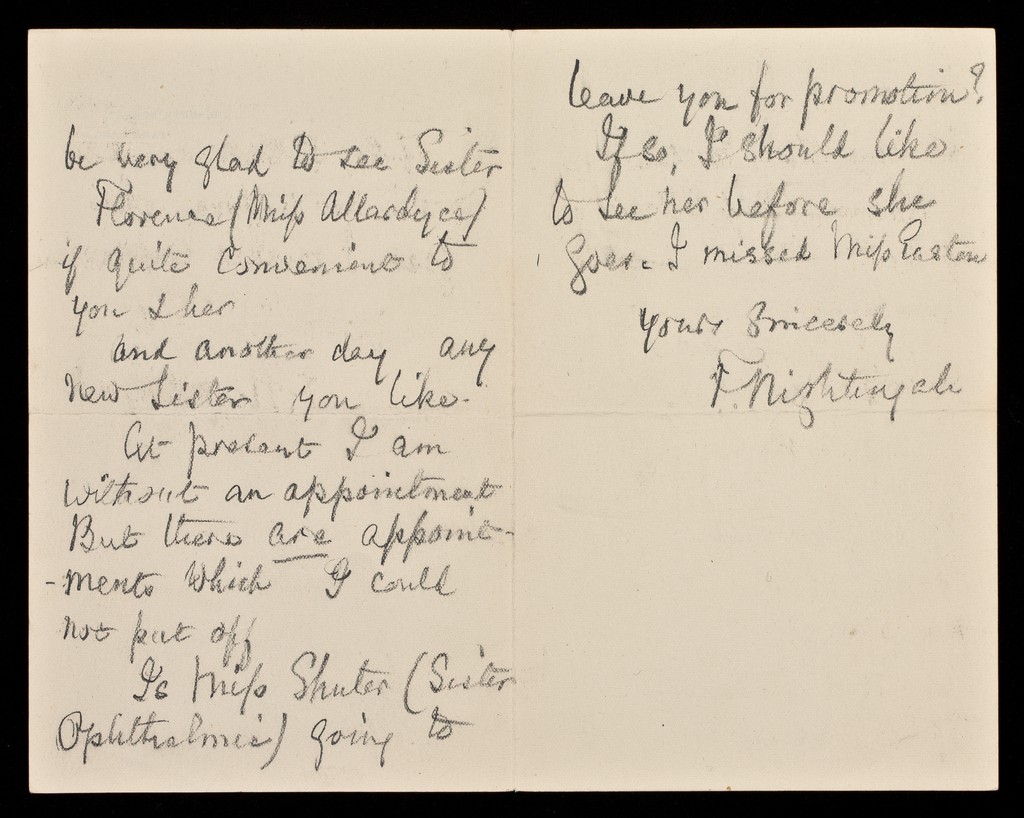 be very glad to see Sister
Florence (Miss Allardyce)
if quite convenient to
you & her
and another day any
new Sister you like.
At present I am
without an appointment
But there are appoint-
-ments which I could
not put off
Is Miss Shuter (Sister
Ophthalmic) going to
leave you for promotion?
If so, I should like
to see her before she
goes. I missed Miss Easton
yours sincerely
F. Nightingale